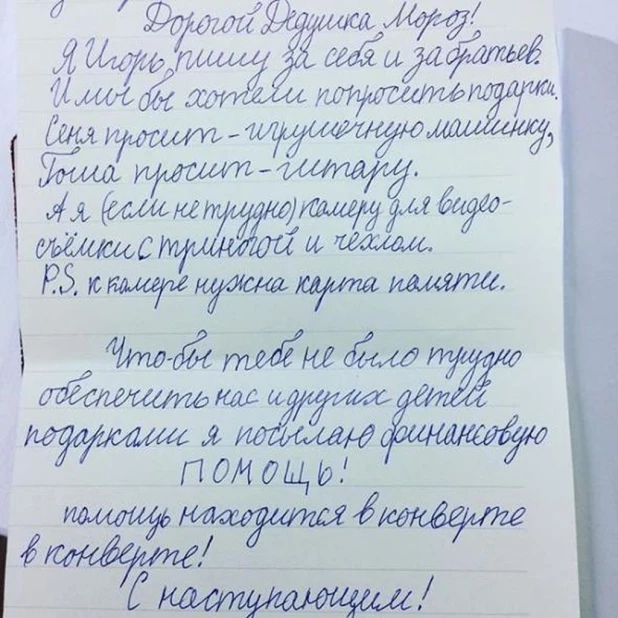 Дорогой Дедушка Мороз!
Я Игорь пишу за себя и за братьев.
И мы бы хотели попросить подарки.
Сеня просит - игрушечную машинку,
Гоша просит - гитару.
А я (если не трудно) камеру для видео-
съёмки с триногой и чехлом.
P.S. к камере нужна карта памяти.
Что-бы тебе не было трудно
обеспечить нас и других детей
подарками я посылаю финансовую
ПОМОЩЬ!
помощь находится в конверте
в конверте!
С наступающим!